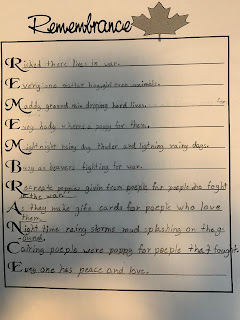 Remembrance
Risked there lives in war.
Every one matter boy girl even animals.
Muddy ground rain droping hard lives.
Every body wheres a poppy for them.
Midnight rainy day, thuder and lightning rainy days.
Busy as beavers fighting for war.
Recreate poppies givin from poeple for poeple who foght
in the war.
As they make gife cards for poeple who love
them.
Night time rainy storms mud splashing on the g-
ound.
Caring poeple were poppy for poeple that fought.
Every one has peace and love.